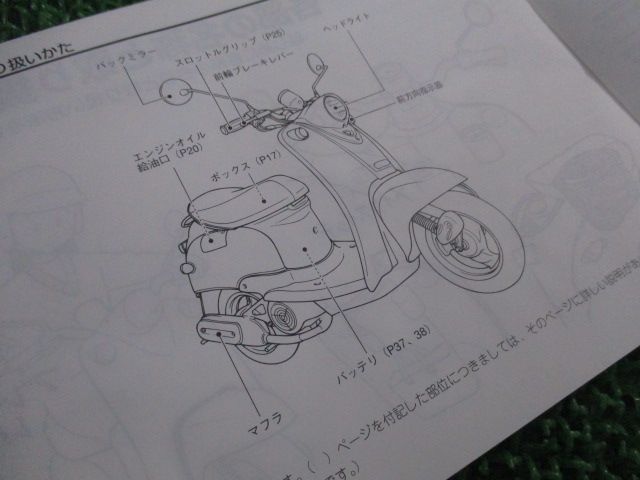 扱いかた
バックミラー
スロットルグリップ（P25）
前輪ブレーキレバー
ヘッドライト
前方向指示器
エンジンオイル
給油口（P20）
ボックス（P17）
バッテリ（P37、38）
マフラ
す。（ ）ページを付記した部位につきましては、そのページに詳しい説明があ
です。）